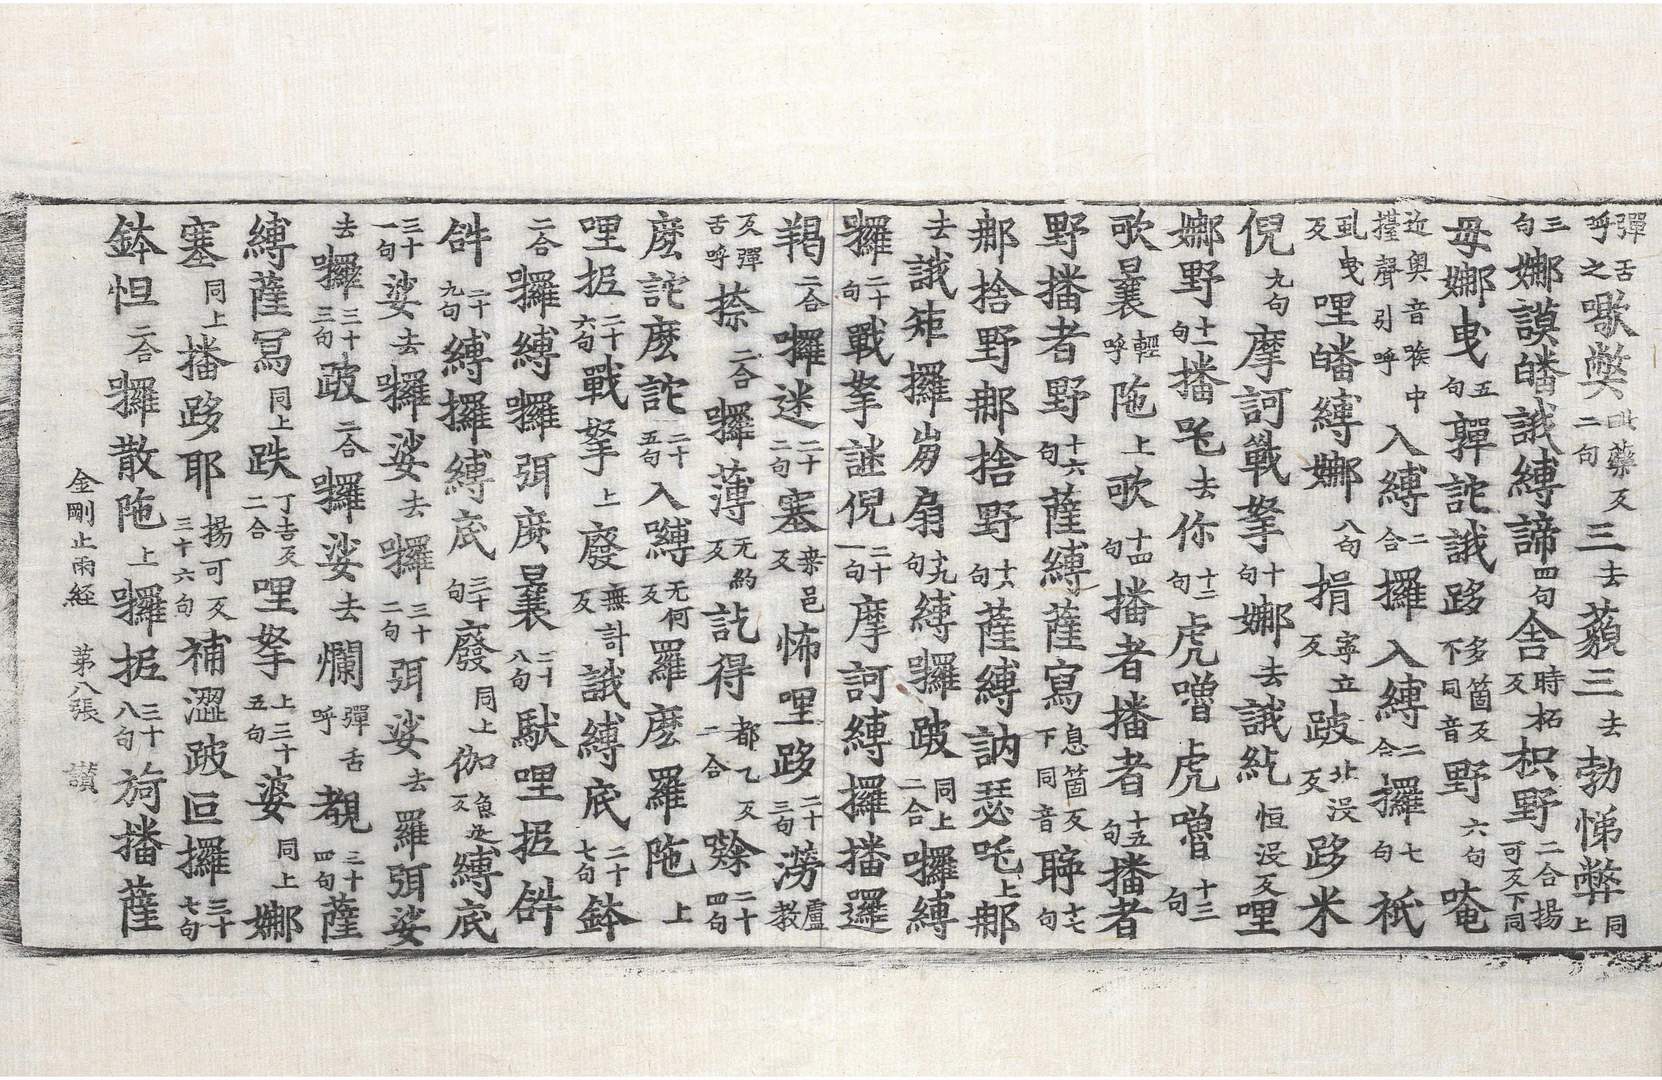 彈舌呼之噷弊毗藥反二句三去藐三去勃悌弊同上
三句娜謨皤誐縛諦四句舍時柘反枳野二合揚可反下同
毋娜曳五句鄿詑誐跢多箇反下同音野六句唵
近奧音喉中擡聲引呼入縛二合攞入縛二合攞七句祇
虬曳反哩皤縛娜八句捐寧立反跛北沒反跢米
倪九句摩訶戰拏十句娜去誐紇恒沒反哩
娜野十一句播吒去你十二句虎嚕虎嚕十三句
歌曩輕呼陁上歌十四句播者播者十五句播者
野播者野十六句薩縛薩寫息箇反下同音聹十七句
那捨野那捨野十八句薩縛訥瑟吒上那
去誐矩攞岁扇十九句縛囉跛同上二合囉縛
囉二十句戰拏謎倪二十一句摩訶縛攞播邏
羯二合囉迷二十二句塞桒邑反怖哩跢二十三句澇盧教
反彈舌呼捺二合囉薄无約反訖得都乙反二合噷二十四句
麽詑麽詑二十五句入嚩无何反羅麽羅陁上
哩抳二十六句戰拏上廢無計反誐縛底二十七句鉢
二合囉縛囉弭麽曩二十八句馱哩抳辝
辝二十九句縛攞縛底三十句廢同上伽魚迄反縛底
三十一句娑去囉娑去囉三十二句弭娑去羅弭娑
去囉三十三句跛二合囉娑去爛彈舌呼覩三十四句薩
縛薩寫同上跌丁吉反二合哩拏上三十五句婆同上娜
塞同上播跢耶揚可反三十六句補澀跛叵攞三十七句
鉢怛二合囉散陁上囉抳三十八句旃播薩
金剛止雨経　第八張　讃